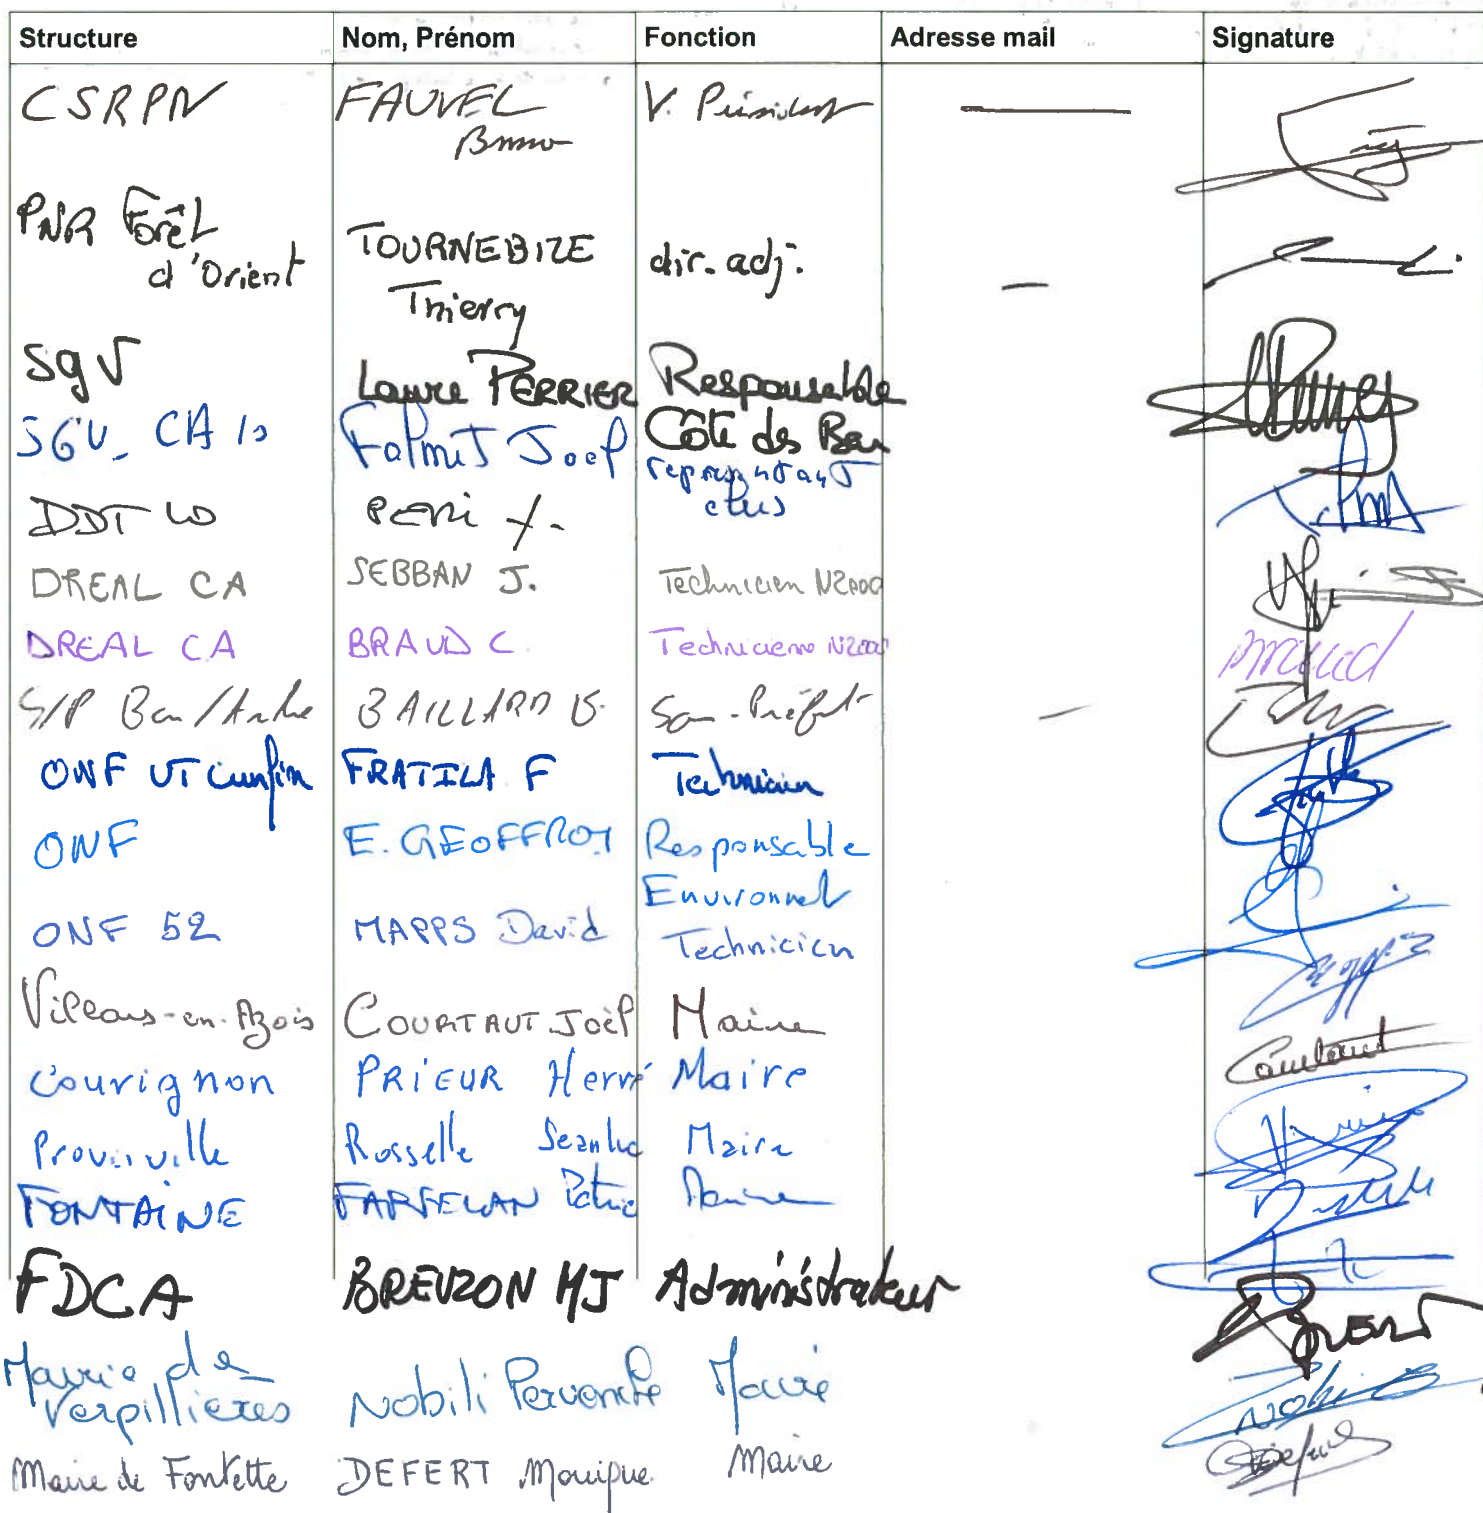 Structure Nom, Prénom Fonction Adresse mail Signature
CSRPN FAUVEL V. Président —
Bruno
PNR Forêt TOURNEBIZE dir. adj. —
d'Orient Thierry
SGV Laure PERRIER Responsable
Côte des Bar
SGV_ CA 10 Falmet Joël représentant
élus
DDT 10 PERI
DREAL CA SEBBAN J. Technicien N2000
DREAL CA BRAUD C Technicienne N2000 Braud
S/P Bar/Aube BAILLARD Sous-Préfet —
ONF UT Cunfin FRATILA F Technicien
ONF E. GEOFFROY Responsable
Environnet
ONF 52 MAPPS David Technicien
Villars-en-Azois COURTAUT Joël Maire Courtaut
Couvignon PRIEUR Hervé Maire
Proverville Rosselle Jeanluc Maire
FONTAINE Maire
FDCA BREUZON MJ Administrateur
Mairie de Nobili Pervenche Maire
Verpillières
Maire de Fontette DEFERT Monique Maire